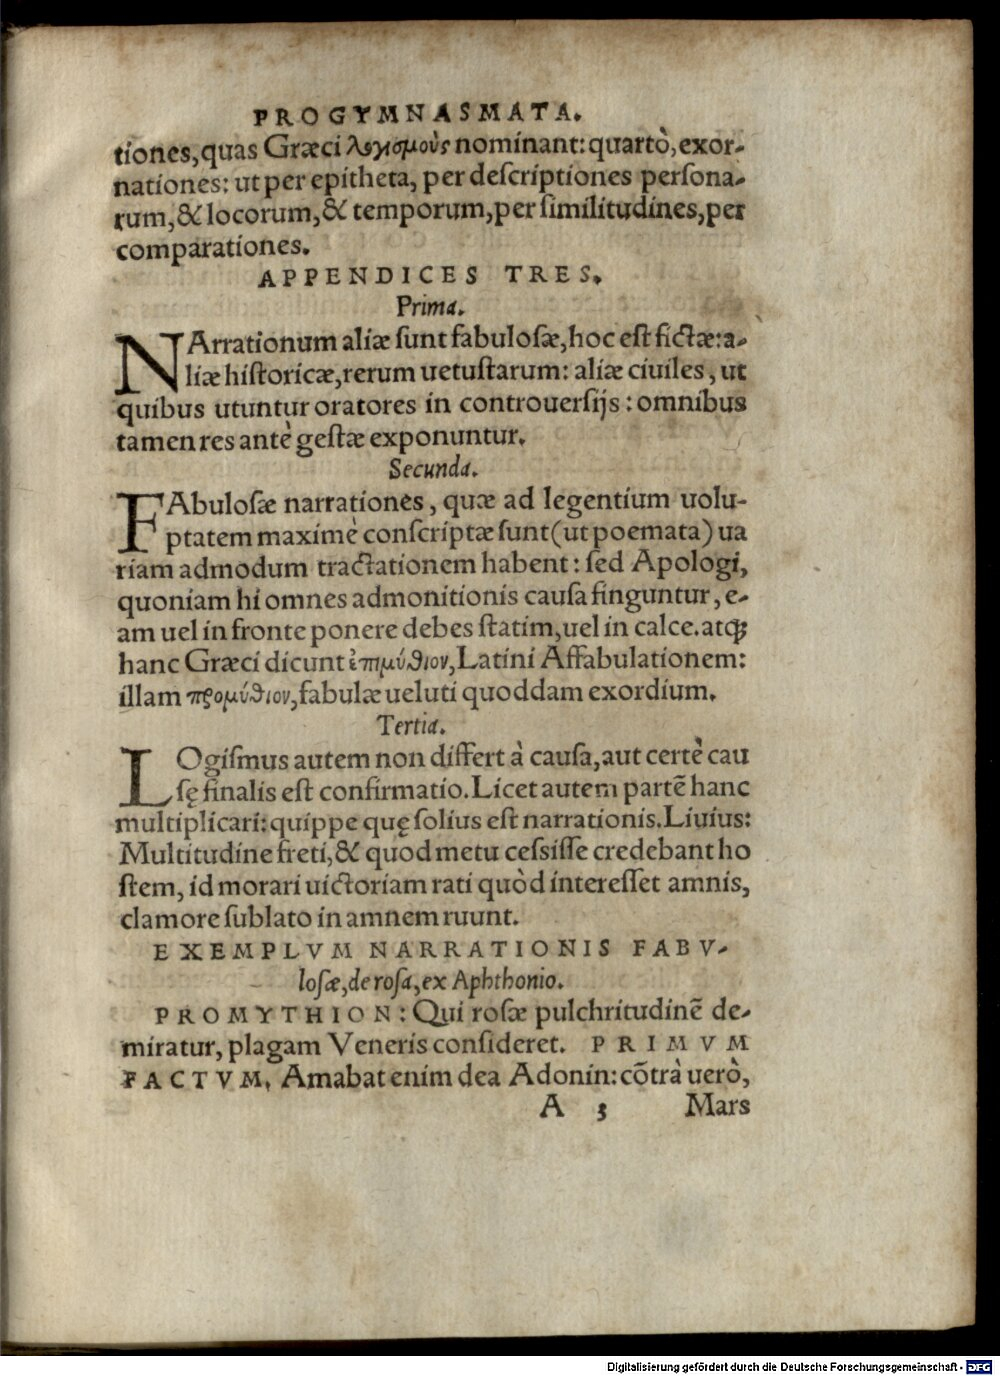 PROGYMNASMATA.
tiones,quas Græci λογισμοὺς nominant:quartò,exor-
nationes: ut per epitheta, per descriptiones persona-
rum,& locorum,& temporum,per similitudines,per
comparationes.
APPENDICES TRES.
Prima.
NArrationum aliæ sunt fabulosæ,hoc est fictæ:a-
liæ historicæ,rerum uetustarum: aliæ ciuiles, ut
quibus utuntur oratores in controuersijs : omnibus
tamen res antè gestæ exponuntur.
Secunda.
FAbulosæ narrationes, quæ ad legentium uolu-
ptatem maximè conscriptæ sunt(ut poemata) ua
riam admodum tractationem habent: sed Apologi,
quoniam hi omnes admonitionis causa finguntur, e-
am uel in fronte ponere debes statim,uel in calce.atq;
hanc Græci dicunt ἐπιμύθιον,Latini Affabulationem:
illam προμύθιον,fabulæ ueluti quoddam exordium.
Tertia.
LOgismus autem non differt à causa,aut certè cau
sę finalis est confirmatio.Licet autem partẽ hanc
multiplicari:quippe quę solius est narrationis.Liuius:
Multitudine freti,& quod metu cessisse credebant ho
stem, id morari uictoriam rati quòd interesset amnis,
clamore sublato in amnem ruunt.
EXEMPLVM NARRATIONIS FABV-
losæ,de rosa,ex Aphthonio.
PROMYTHION: Qui rosæ pulchritudinẽ de-
miratur, plagam Veneris consideret. PRIMVM
FACTVM. Amabat enim dea Adonin:cõtrà uerò,
A 3 Mars
Digitalisierung gefördert durch die Deutsche Forschungsgemeinschaft - DFG